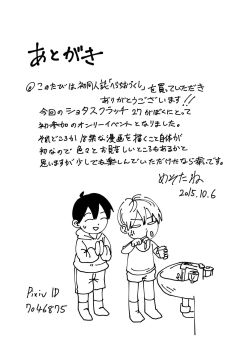 あとがき
このたびは初同人誌「   づくし」を買っていただき
ありがとうございます!!
今回のショタスクラッチ27がぼくにとって
初参加のオンリーイベントとなりました。
それどころか  な漫画を描くこと自体が
初なので色々とお見苦しいところもあるかと
思いますが少しでも楽しんでいただけたなら幸いです。
めめたね
2015.10.6
Pixiv ID
7046875